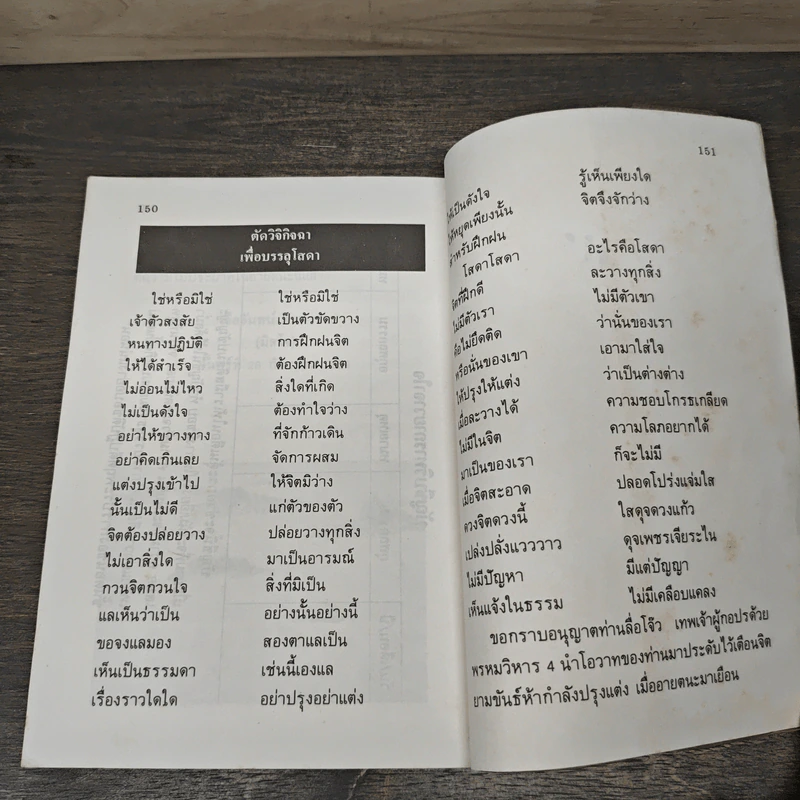 150
ตัดวิจิกิจฉา
เพื่อบรรลุโสดา
ใช่หรือมิใช่ ใช่หรือมิใช่
เจ้าตัวสงสัย เป็นตัวขัดขวาง
หนทางปฏิบัติ การฝึกฝนจิต
ให้ได้สำเร็จ ต้องฝึกฝนจิต
ไม่อ่อนไม่ไหว สิ่งใดที่เกิด
ไม่เป็นดังใจ ต้องทำใจว่าง
อย่าให้ขวางทาง ที่จักก้าวเดิน
อย่าคิดเกินเลย จัดการผสม
แต่งปรุงเข้าไป ให้จิตมิว่าง
นั้นเป็นไม่ดี แก่ตัวของตัว
จิตต้องปล่อยวาง ปล่อยวางทุกสิ่ง
ไม่เอาสิ่งใด มาเป็นอารมณ์
กวนจิตกวนใจ สิ่งที่มิเป็น
แลเห็นว่าเป็น อย่างนั้นอย่างนี้
ขอจงแลมอง สองตาแลเป็น
เห็นเป็นธรรมดา เช่นนี้เองแล
เรื่องราวใดใด อย่าปรุงอย่าแต่ง
151
ให้เป็นดังใจ รู้เห็นเพียงใด
ให้หยุดเพียงนั้น จิตจึงจักว่าง
สำหรับฝึกฝน
โสดาโสดา อะไรคือโสดา
จิตที่ฝึกดี ละวางทุกสิ่ง
ไม่มีตัวเรา ไม่มีตัวเขา
คือไม่ยึดติด ว่านั่นของเรา
หรือนั่นของเขา เอามาใส่ใจ
ให้ปรุงให้แต่ง ว่าเป็นต่างต่าง
เมื่อละวางได้ ความชอบโกรธเกลียด
ไม่มีในจิต ความโลภอยากได้
มาเป็นของเรา ก็จะไม่มี
เมื่อจิตสะอาด ปลอดโปร่งแจ่มใส
ดวงจิตดวงนี้ ใสดุจดวงแก้ว
เปล่งปลั่งแวววาว ดุจเพชรเจียระไน
ไม่มีปัญหา มีแต่ปัญญา
เห็นแจ้งในธรรม ไม่มีเคลือบแคลง
ขอกราบอนุญาตท่านลื่อโจ๊ว เทพเจ้าผู้กอปรด้วย
พรหมวิหาร 4 นำโอวาทของท่านมาประดับไว้เตือนจิต
ยามขันธ์ห้ากำลังปรุงแต่ง เมื่ออายตนะมาเยือน